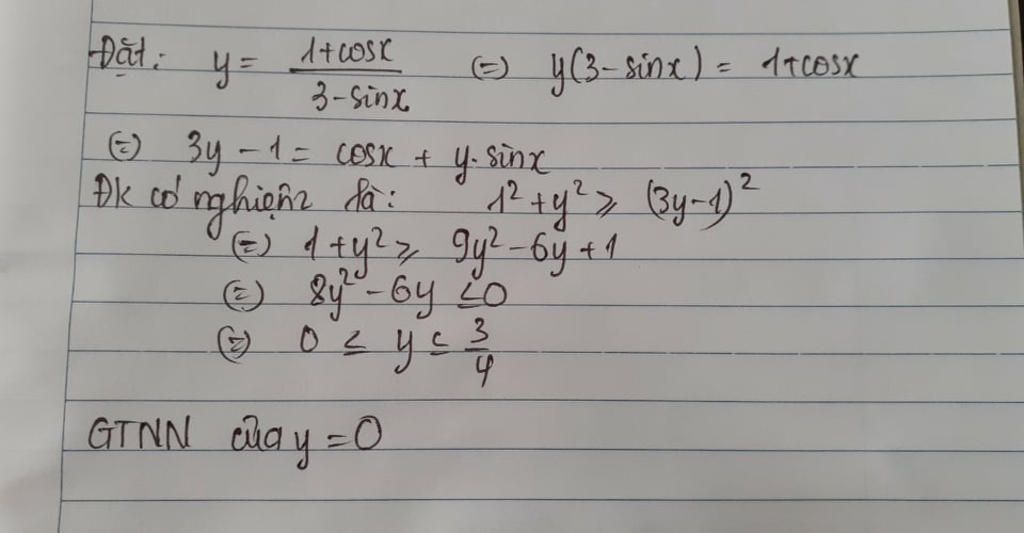 Đặt: y = (1+cosx)/(3-sinx) (=) y(3-sinx) = 1+cosx
(=) 3y - 1 = cosx + y.sinx
ĐK có nghiệm là: 1² + y² ≥ (3y-1)²
(=) 1 + y² ≥ 9y² - 6y + 1
(=) 8y² - 6y ≤ 0
(=) 0 ≤ y ≤ 3/4
GTNN của y = 0